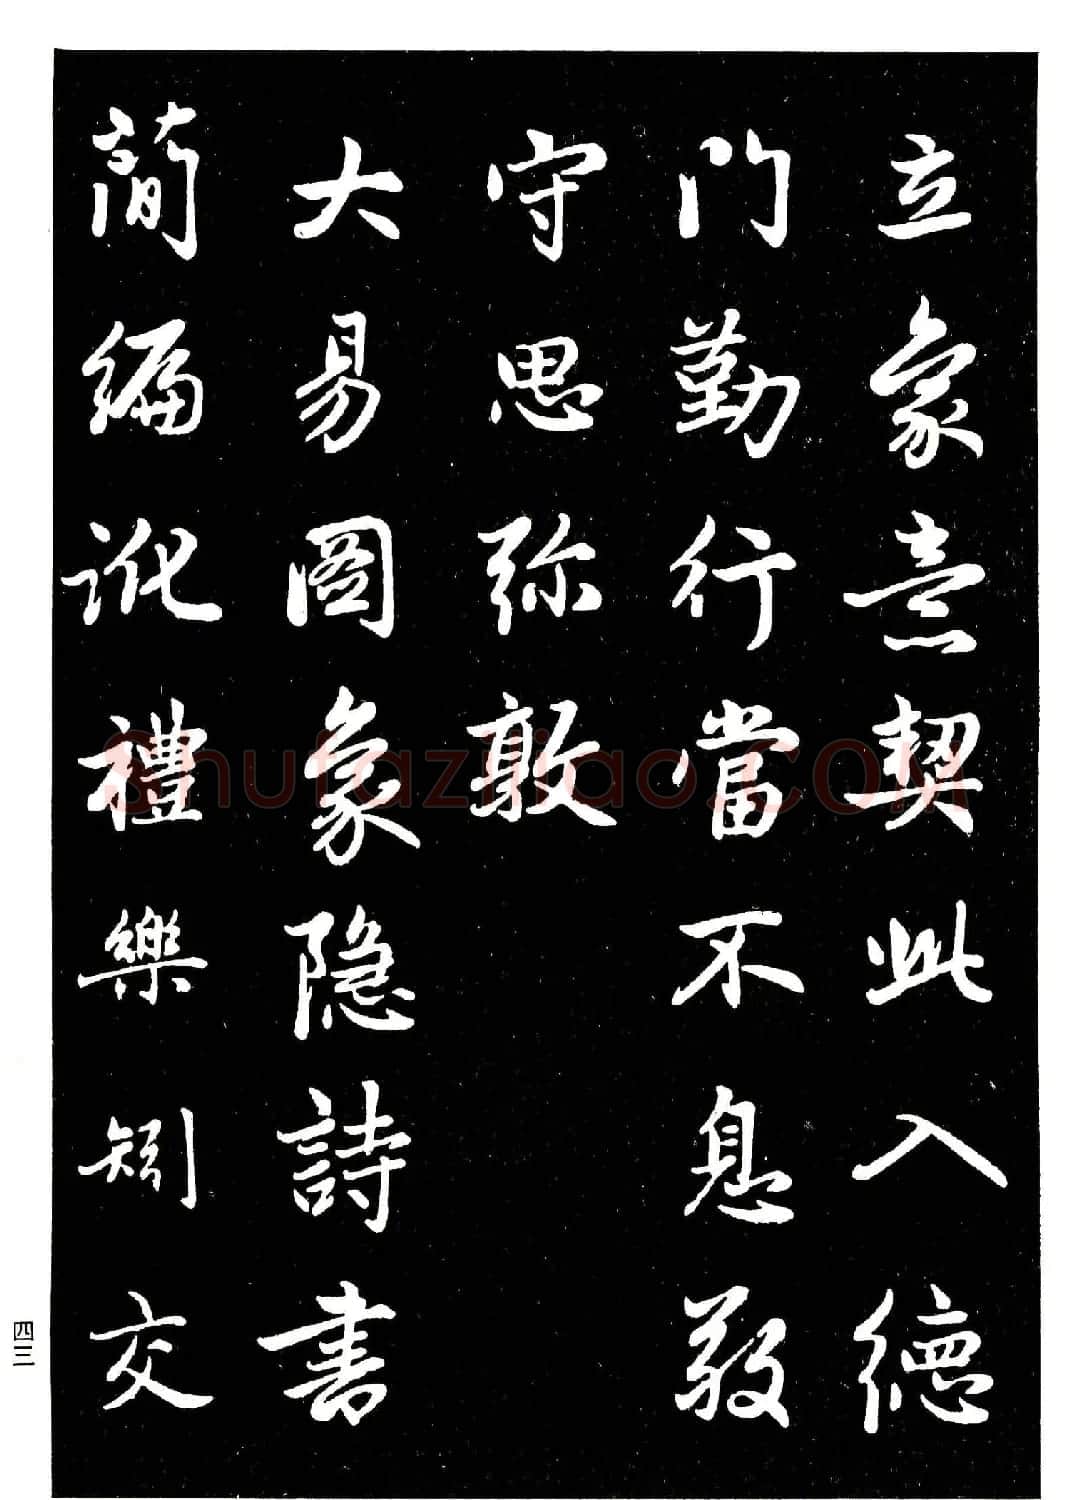 立象意契此入德
門勤行當不息敬
守思弥敦
大易圖象隐詩書
簡編訛禮樂矧交
四三
Shufaziliao.COM